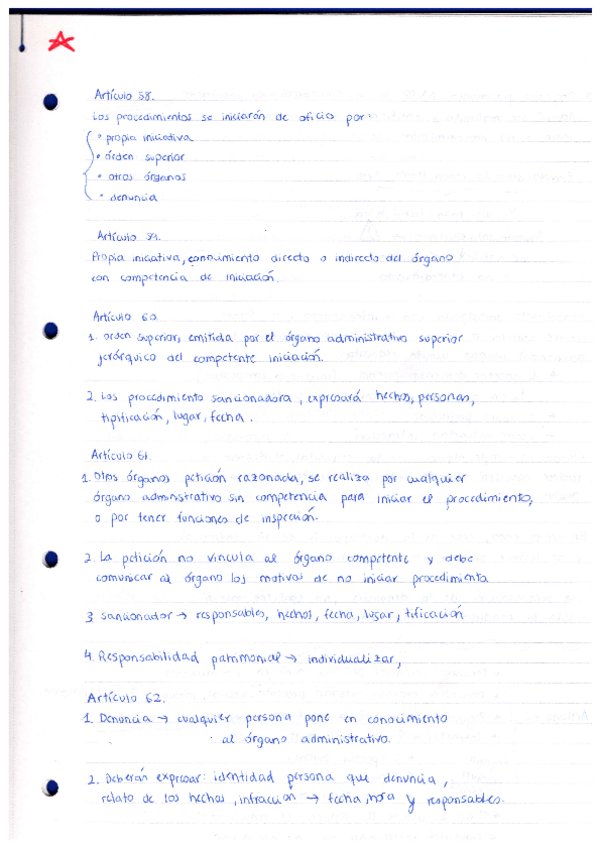 Artículo 58.
Los procedimientos se iniciarán de oficio por:
• propia iniciativa
• órden superior
• otros órganos
• denuncia
Artículo 59.
Propia iniciativa, conocimiento directo o indirecto del órgano
con competencia de iniciación.
Artículo 60.
1. orden superior, emitida por el órgano administrativo superior
jerárquico del competente iniciación.
2. Los procedimiento sancionadora, expresará hechos, personas,
tipificación, lugar, fecha.
Artículo 61.
1. Otros órganos petición razonada, se realiza por cualquier
órgano administrativo sin competencia para iniciar el procedimiento,
o por tener funciones de inspección.
2. La petición no vincula al órgano competente y debe
comunicar al órgano los motivos de no iniciar procedimiento
3. sancionador → responsables, hechos, fecha, lugar, tificación
4. Responsabilidad patrimonial → individualizar,
Artículo 62.
1. Denuncia → cualquier persona pone en conocimiento
al órgano administrativo.
2. Deberán expresar: identidad persona que denuncia,
relato de los hechos, infracción → fecha, hora y responsables.